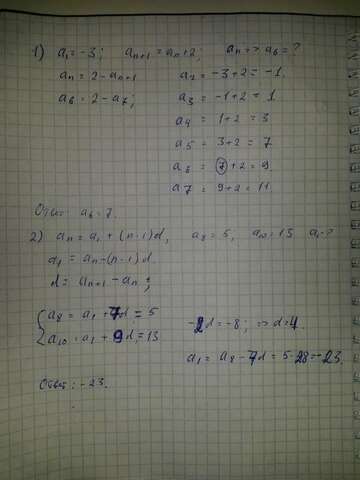 1) a₁ = -3; aₙ₊₁ = aₙ + 2; a₆ = ?
aₙ = 2 - aₙ₊₁ a₂ = -3+2 = -1.
a₆ = 2 - a₇; a₃ = -1+2 = 1
a₄ = 1+2 = 3
a₅ = 3+2 = 7
a₆ = 7+2 = 9
a₇ = 9+2 = 11
Ответ: a₆ = 7.
2) aₙ = a₁ + (n-1)d, a₈ = 5, a₁₀ = 13 a₁ - ?
a₁ = aₙ - (n-1)d
d = aₙ₊₁ - aₙ;
a₈ = a₁ + 7d = 5 -2d = -8; => d = 4
a₁₀ = a₁ + 9d = 13
a₁ = a₈ - 7d = 5-28 = -23.
Ответ: -23.